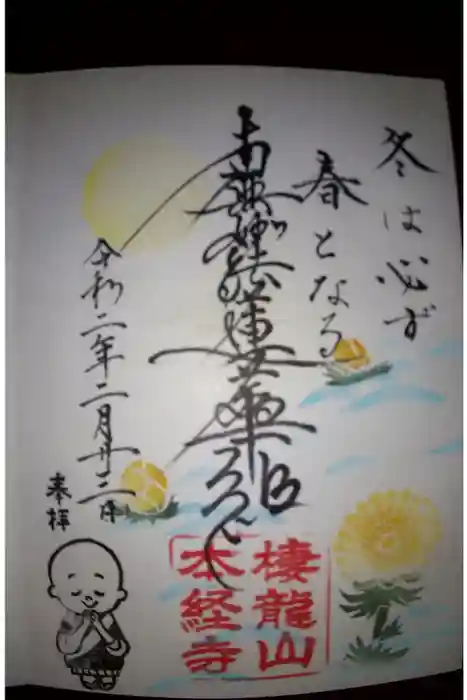 冬は必ず
春となる
南無妙法蓮華経
令和二年二月廿二日
奉拝
棲龍山
本経寺